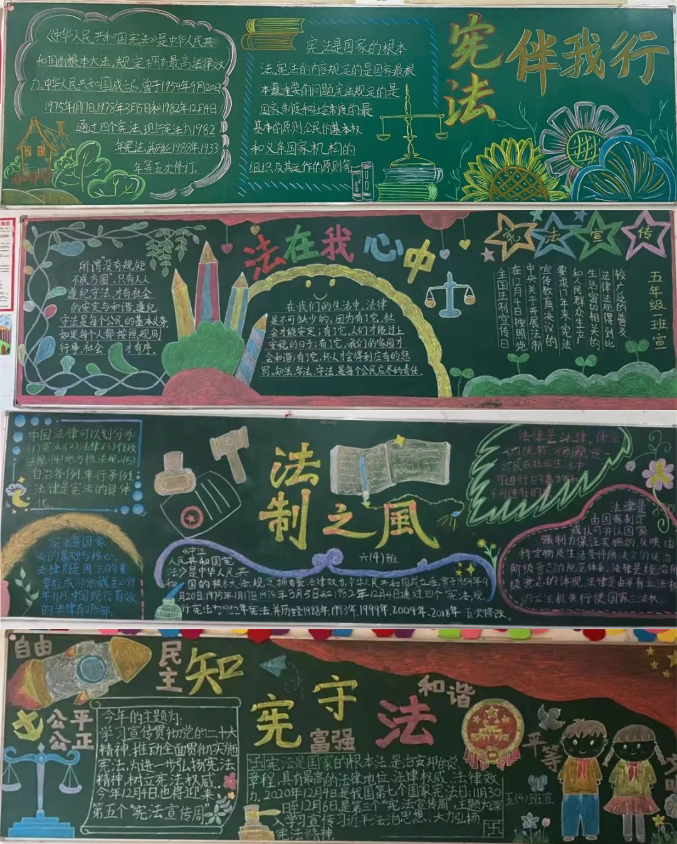 《中华人民共和国宪法》是中华人民共
和国的根本大法,规定拥有最高法律效
力.中华人民共和国成立后,曾于1954年9月20日
1975年1月17日1978年3月5日和1982年12月4日
通过四个宪法,现行宪法为1982
年宪法,并历经1988年,1993
年等五次修订.
宪法是国家的根本
法,宪法的内容规定的是国家最根
本最重要的问题,宪法规定的是
国家制度和社会制度的最
基本的原则,公民的基本权
和义务国家机构的
组织及其运作的原则等
宪法
伴我行
所谓"没有规矩
不成方圆",只有人人
遵纪守法,才有社会
的安定与和谐,遵纪
守法是每个公民的基本义务
如果每个人都按照规则
行事,社会才有序。
法在我心中
在我们的生活中,法律
是不可缺少的,因为有了它,社
会才能安定;有了它,人们才能过上
安稳的日子;有了它,我们的家园才
会和谐;有了它,坏人才会得到应有的惩
罚,知法,学法,守法,是每个公民应尽的责任.
宪法宣传
较广泛的普及
法律法规得到比
生活密切相关的
和人民群众生产
要求,几年来宪法
宣传教育决议的
中央关于开展法制
在12月4日按照党
全国法制宣传日
五年级一班宣
中国法律可以划分为
法律是宪法的具体
化
宪法是国家
法的基础与核心,
法律则是国法的重
要组成部分,截至2019
年8月,中国现行有效
的法律有275部.
法制之風
六(4)班
《中华
人民共和国宪
法》是中华人民共
和国的根本大法,规定拥有最高法律效力.中华人民共和国成立后,曾于1954年9
月20日,1975年1月17日,1978年3月5日和1982年12月4日通过四个宪法,现
行宪法为1982年宪法,并历经1988年,1993年,1999年,2004年,2018年五次修改。
法律是
由国家制定
或认可并以国家
强制力保证实施的,反映由
特定物质生活条件所决定的统治
阶级意志的规范体系.法律是统治阶
级意志的体现,法律是由享有立法权
的立法机关行使国家立法权
自由
民主
公平
公正
知宪守法
富强
和谐
平等
今年的主题为:
学习宣传贯彻党的二十大
精神,推动全面贯彻实施
宪法,为进一步弘扬宪法
精神,树立宪法权威,
今年12月4日也将迎来
第五个"宪法宣传周"
宪法是国家的根本法,是治国安邦的总
章程,具有最高的法律地位、法律权威、法律效
力.2020年12月4日是我国第七个国家宪法日;11月30
日至12月6日是第三个"宪法宣传周",主题为深
入学习宣传习近平法治思想,大力弘扬
宪法精神.
五(4)班宣